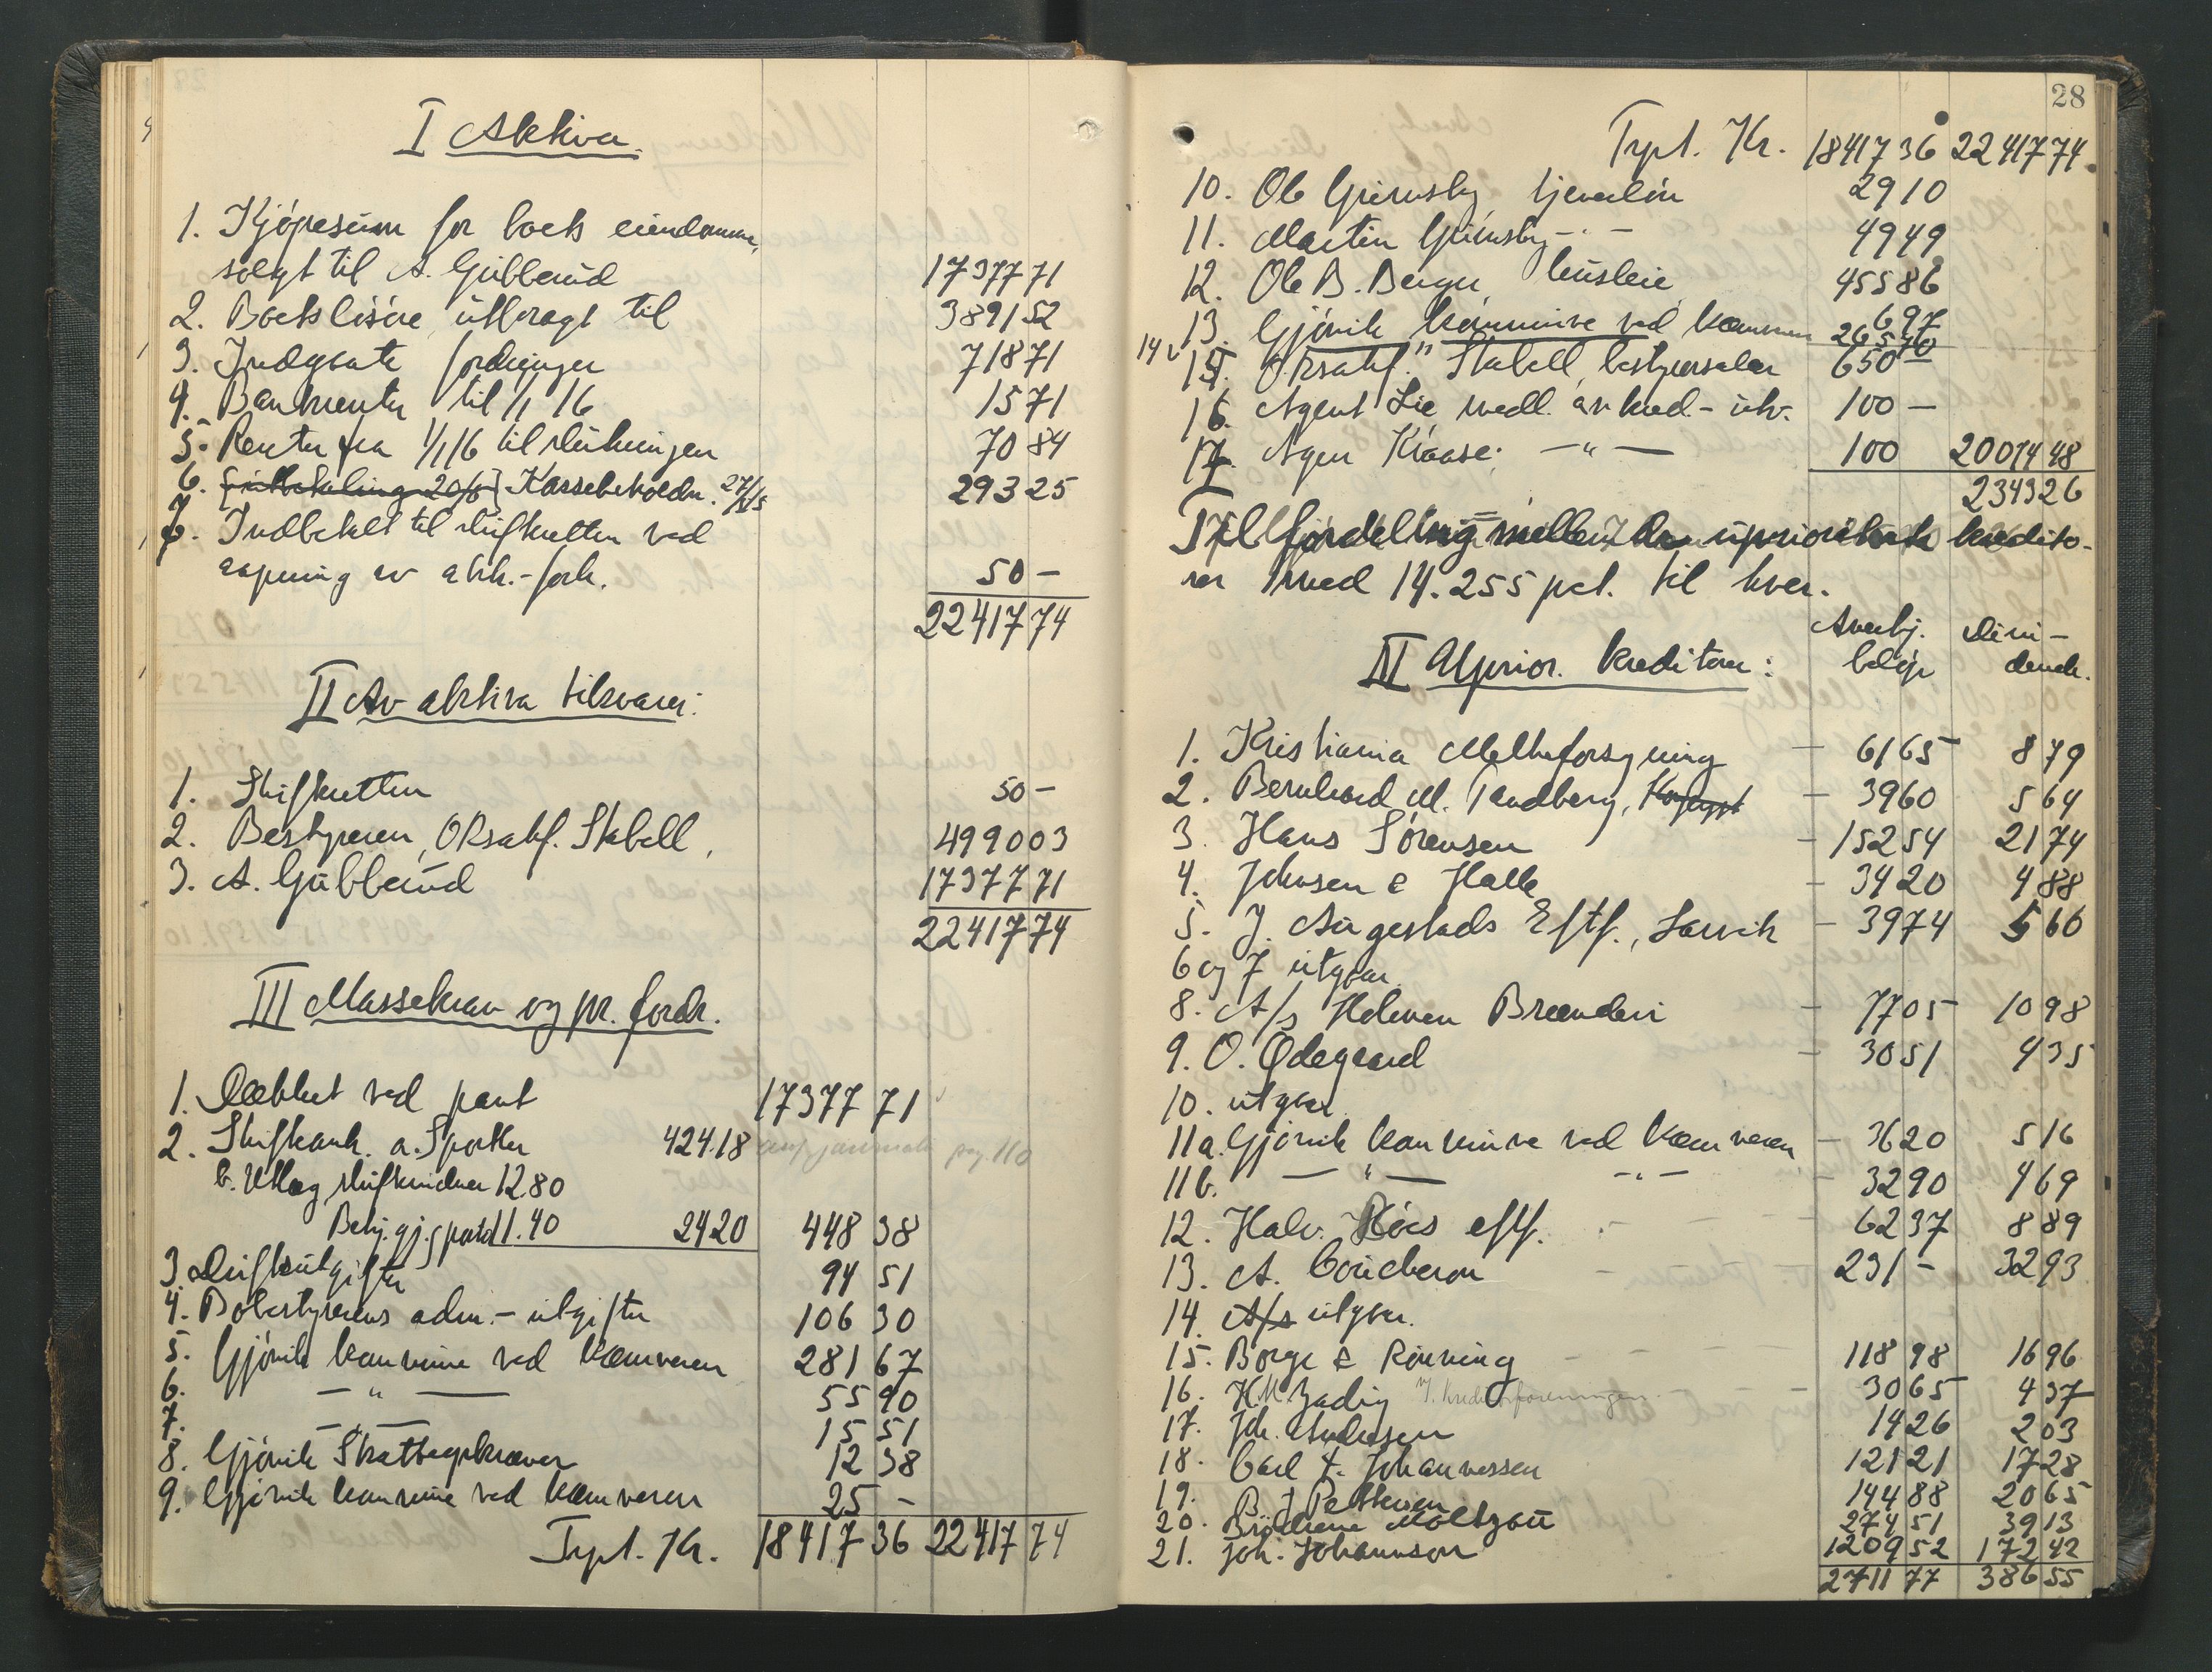 I Aktiva.
1. Kjøpesum for boets eiendommer,
solgt til A. Gubberud 17377 71
2. Boets løsøre utbragt til 3891 52
3. Indgaate fordringer 718 71
4. Bankrenter til 1/1 16 15 71
5. Renter fra 1/1 16 til slutningen 70 84
6. Kassebeholdn. 27/ 293 25
7. Indbetalt til skifteretten ved
aapning av akk.-forh. 50 -
22417 74
II Av aktiva tilsvarer:
1. Skifteretten 50 -
2. Bestyreren, ORsakf. Stabell, 4990 03
3. A. Gubberud 17377 71
22417 74
III Massekrav og pr. fordr.
1. Dækket ved pant 17377 71
2. Skifteomk. a. Sportler 424.18 pag. 110
b. Utlæg skiftevidner 12.80
Bekj.gj. porto 11.40 24 20 448 38
3. Driftsutgifter 94 51
4. Bobestyrerens adm.- utgifter 106 30
5. Gjøvik kommune ved kæmneren 281 67
6. — " — 55 90
7. — — 15 51
8. Gjøvik Skatteopkræver 12 38
9. Gjøvik kommune ved kæmneren 25 -
Trpt. Kr. 18417 36 22417 74
28
Trpt. Kr. 18417 36 22417 74
10. Ole Grimsby tjenerløn 29 10
11. Martin Grimsby - " - 49 49
12. Ole B. Berger, husleie 455 86
13. Gjøvik kommune ved kæmneren 6 97
14 " 265 70
15. ORsakf. Stabell, bestyrersalær 650 -
16. Agent Lie medl. av kred.- utv. 100 -
17. Agen Kraase. — " — 100 20074 48
2343 26
Til fordeling mellem de upriorite­rte kredito-
rer med 14.255 pct. til hver.
IV Uprior. kreditorer: Anerkj. beløp Divi- dende.
1. Kristiania Melkeforsyning - 61 65 8 79
2. Bernhard M. Tandberg, - 39 60 5 64
3. Hans Sørensen - 152 54 21 74
4. Johnsen & Halle - 34 20 4 88
5. J. Augestads Eftf., Larvik - 39 74 5 66
6 og 7 utgaar.
8. A/s Holmen Brænderi - 77 05 10 98
9. O. Ødegaard - 30 51 4 35
10. utgaar
11a. Gjøvik kommune ved kæmneren - 36 20 5 16
11b. — " — - " - 32 90 4 69
12. Halv. Roos eftf. 62 37 8 89
13. A. Coucheron - 231 - 32 93
14. A/s utgaar.
15. Borge & Rønning - - - 118 98 16 96
16. H.M. Zadig v. kreditforeningen - 30 65 4 37
17. Joh. Andersen 14 26 2 03
18. Carl F. Johannessen 121 21 17 28
19. B. J. Pettersen 144 88 20 65
20. Brødrene Moltzau 274 51 39 13
21. Joh. Johannson 1209 52 172 42
2711 77 386 55